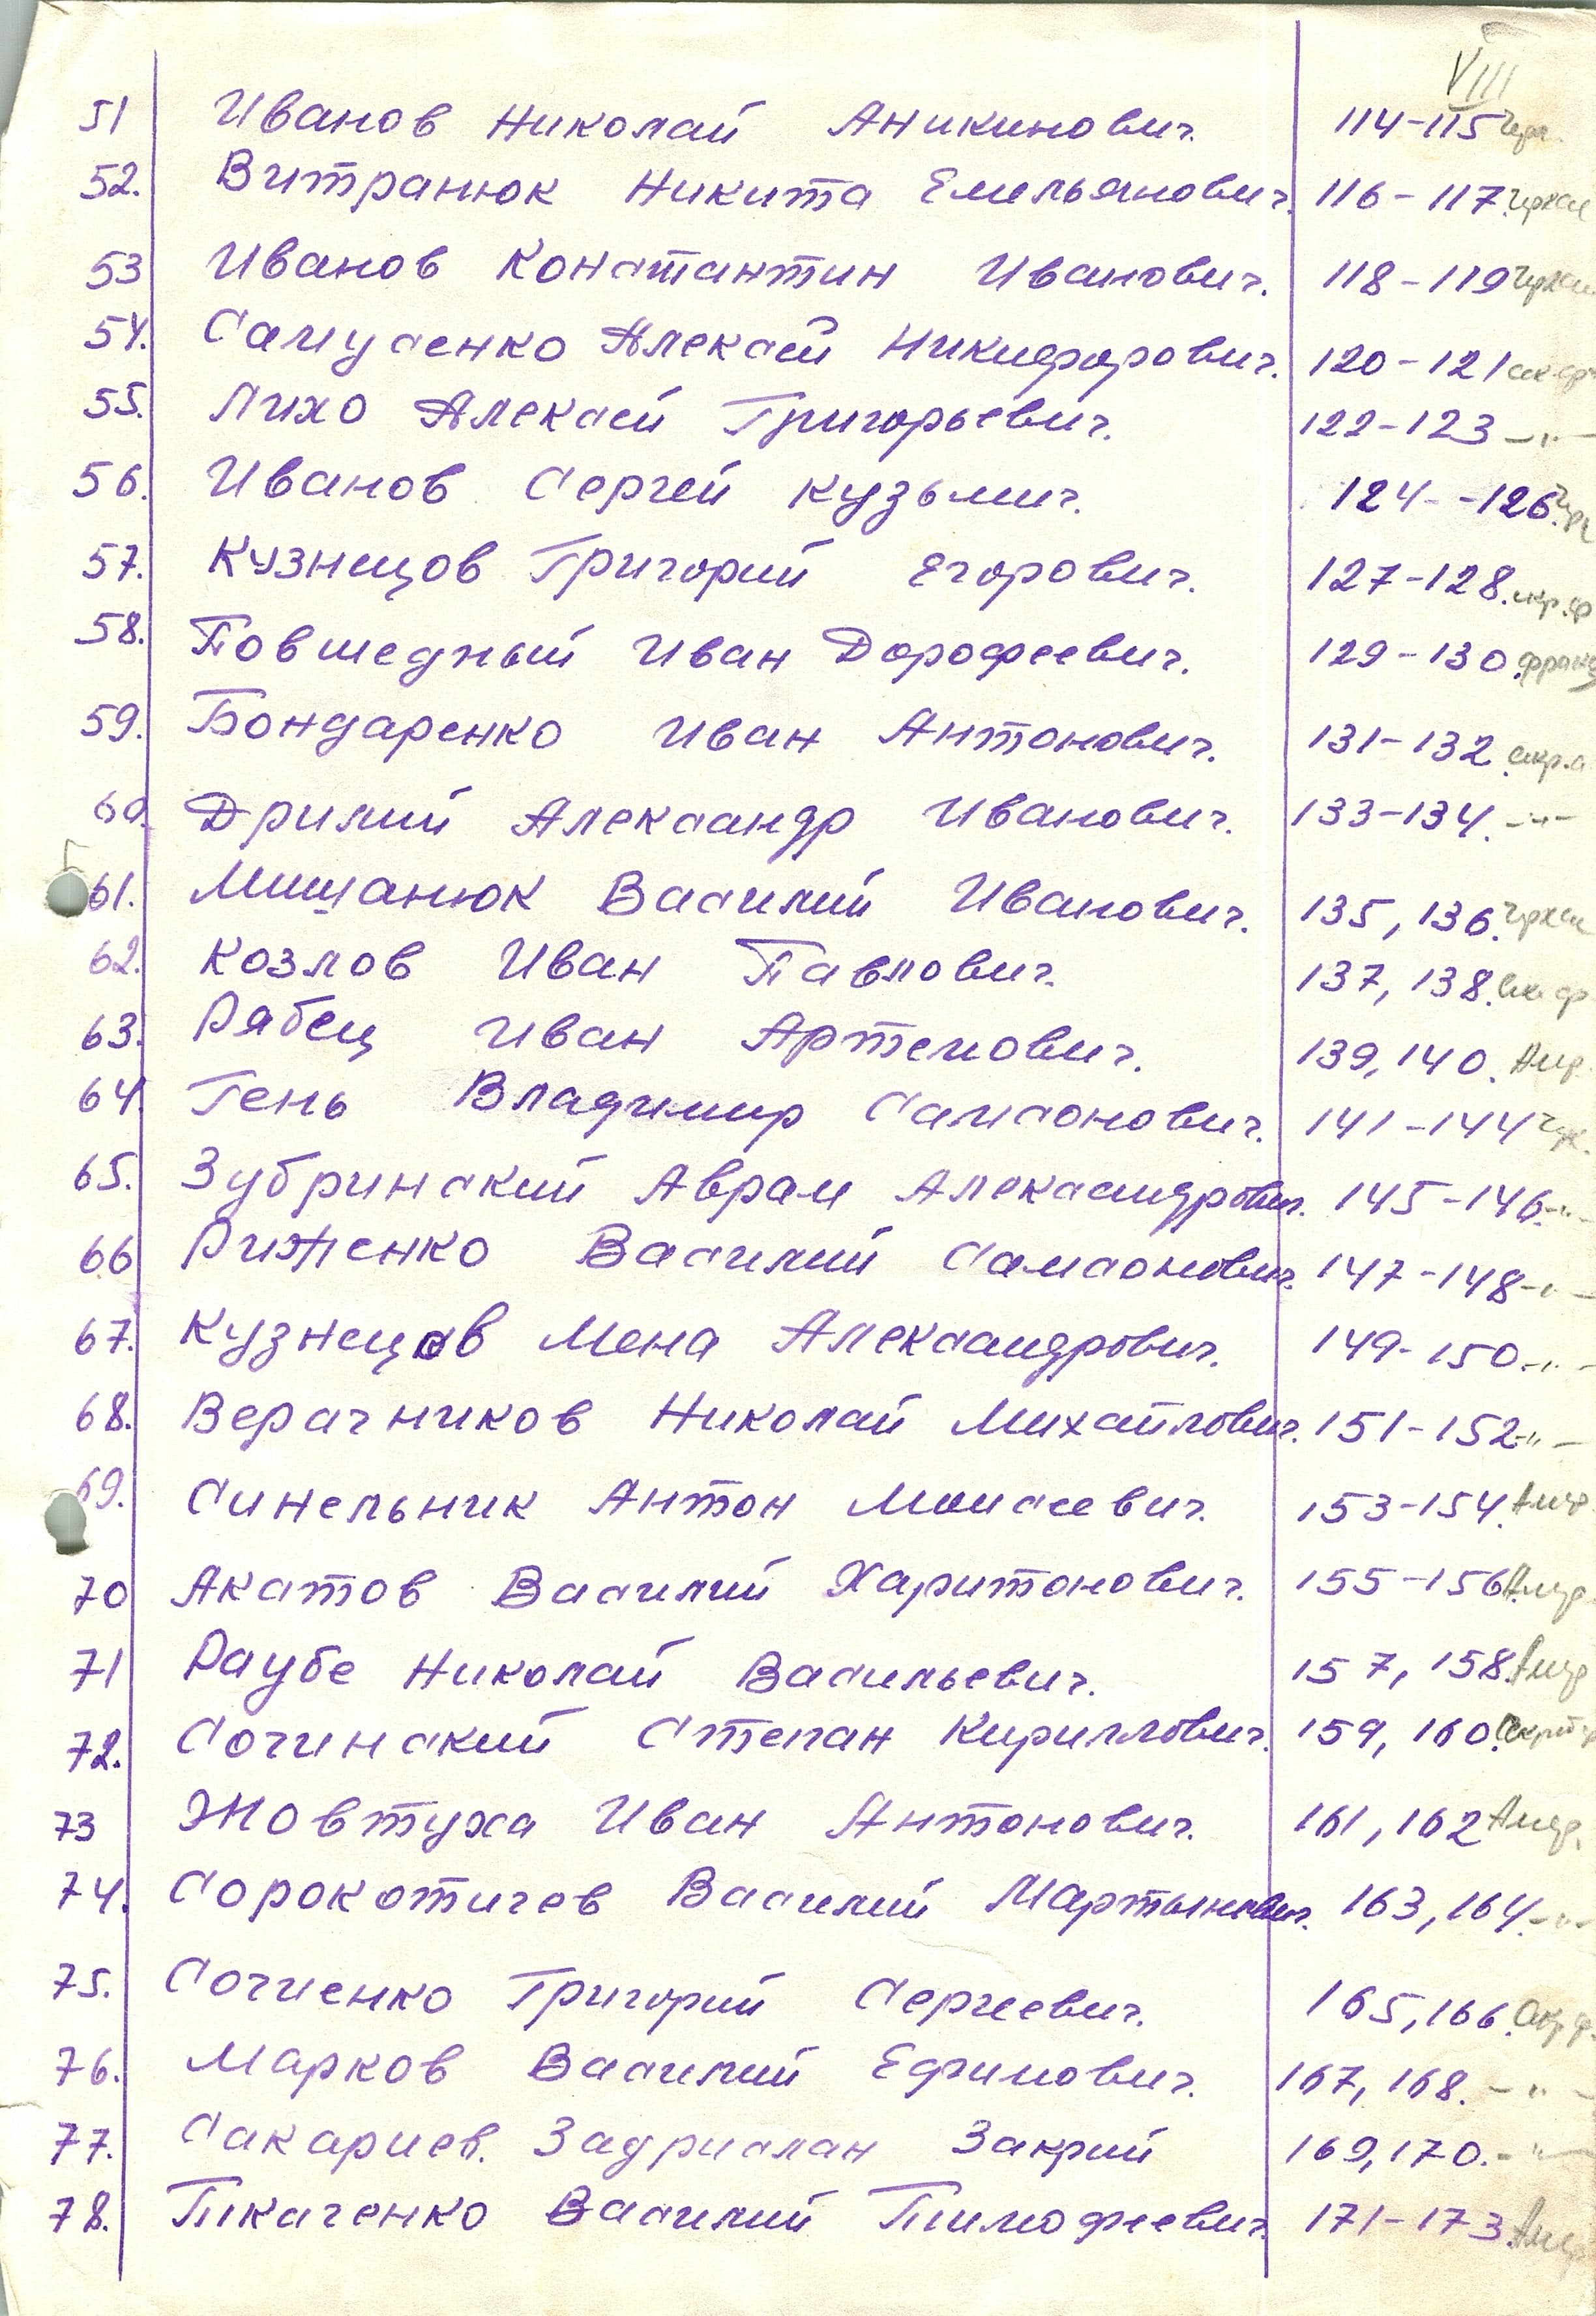 VIII
51 Иванов Николай Аникинович. 114-115
52. Витранюк Никита Емельянович. 116-117.
53 Иванов Константин Иванович. 118-119
54. Самусенко Алексей Никифорович. 120-121
55. Лихо Алексей Григорьевич. 122-123 -"-
56. Иванов Сергей Кузьмич. 124--126.
57. Кузнецов Григорий Егорович. 127-128.
58. Повшедный Иван Дорофеевич. 129-130.
59. Бондаренко Иван Антонович. 131-132
60. Дрилий Александр Иванович. 133-134. -"-
61. Мишанюк Василий Иванович. 135, 136.
62. Козлов Иван Павлович. 137, 138.
63. Рябец Иван Артемович. 139, 140.
64. Гень Владимир Самсонович. 141-144
65. Зубринский Аврам Александрович. 145-146-"-
66 Риженко Василий Самсонович. 147-148-"-
67. Кузнецов Мена Александрович. 149-150-"-
68. Версчников Николай Михайлович. 151-152-"-
69. Синельник Антон Моисеевич. 153-154.
70 Акатов Василий Харитонович. 155-156.
71 Раубе Николай Васильевич. 157, 158.
72. Сочинский Степан Кириллович. 159, 160.
73 Жовтуха Иван Антонович. 161, 162
74. Сорокотичев Василий Мартынович. 163, 164.-"-
75. Сочиенко Григорий Сергеевич. 165, 166.
76. Марков Василий Ефимович. 167, 168. -"-
77. Сакариев. Задрислан Закрий 169, 170.-"-
78. Ткаченко Василий Тимофеевич. 171-173.